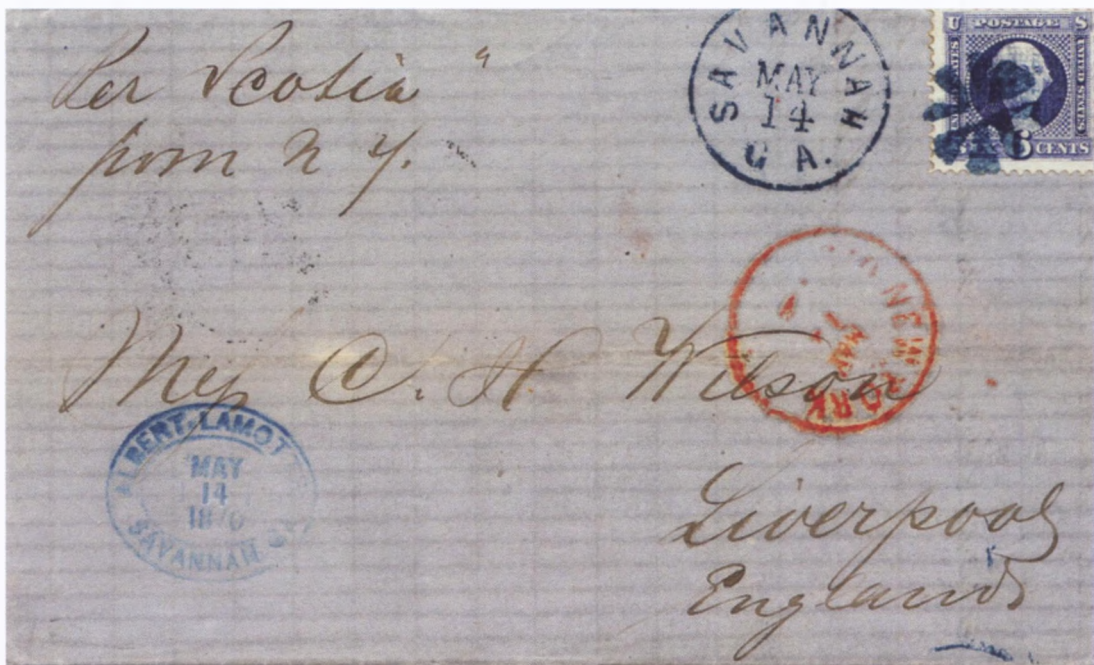 Per Scotia "
from N Y.
SAVANNAH
MAY
14
GA.
U POSTAGE S
UNITED STATES
6 CENTS
NEW YORK
C. H Wilson
ALBERT LAMOT
MAY
14
1870
SAVANNAH GA
Liverpool
England